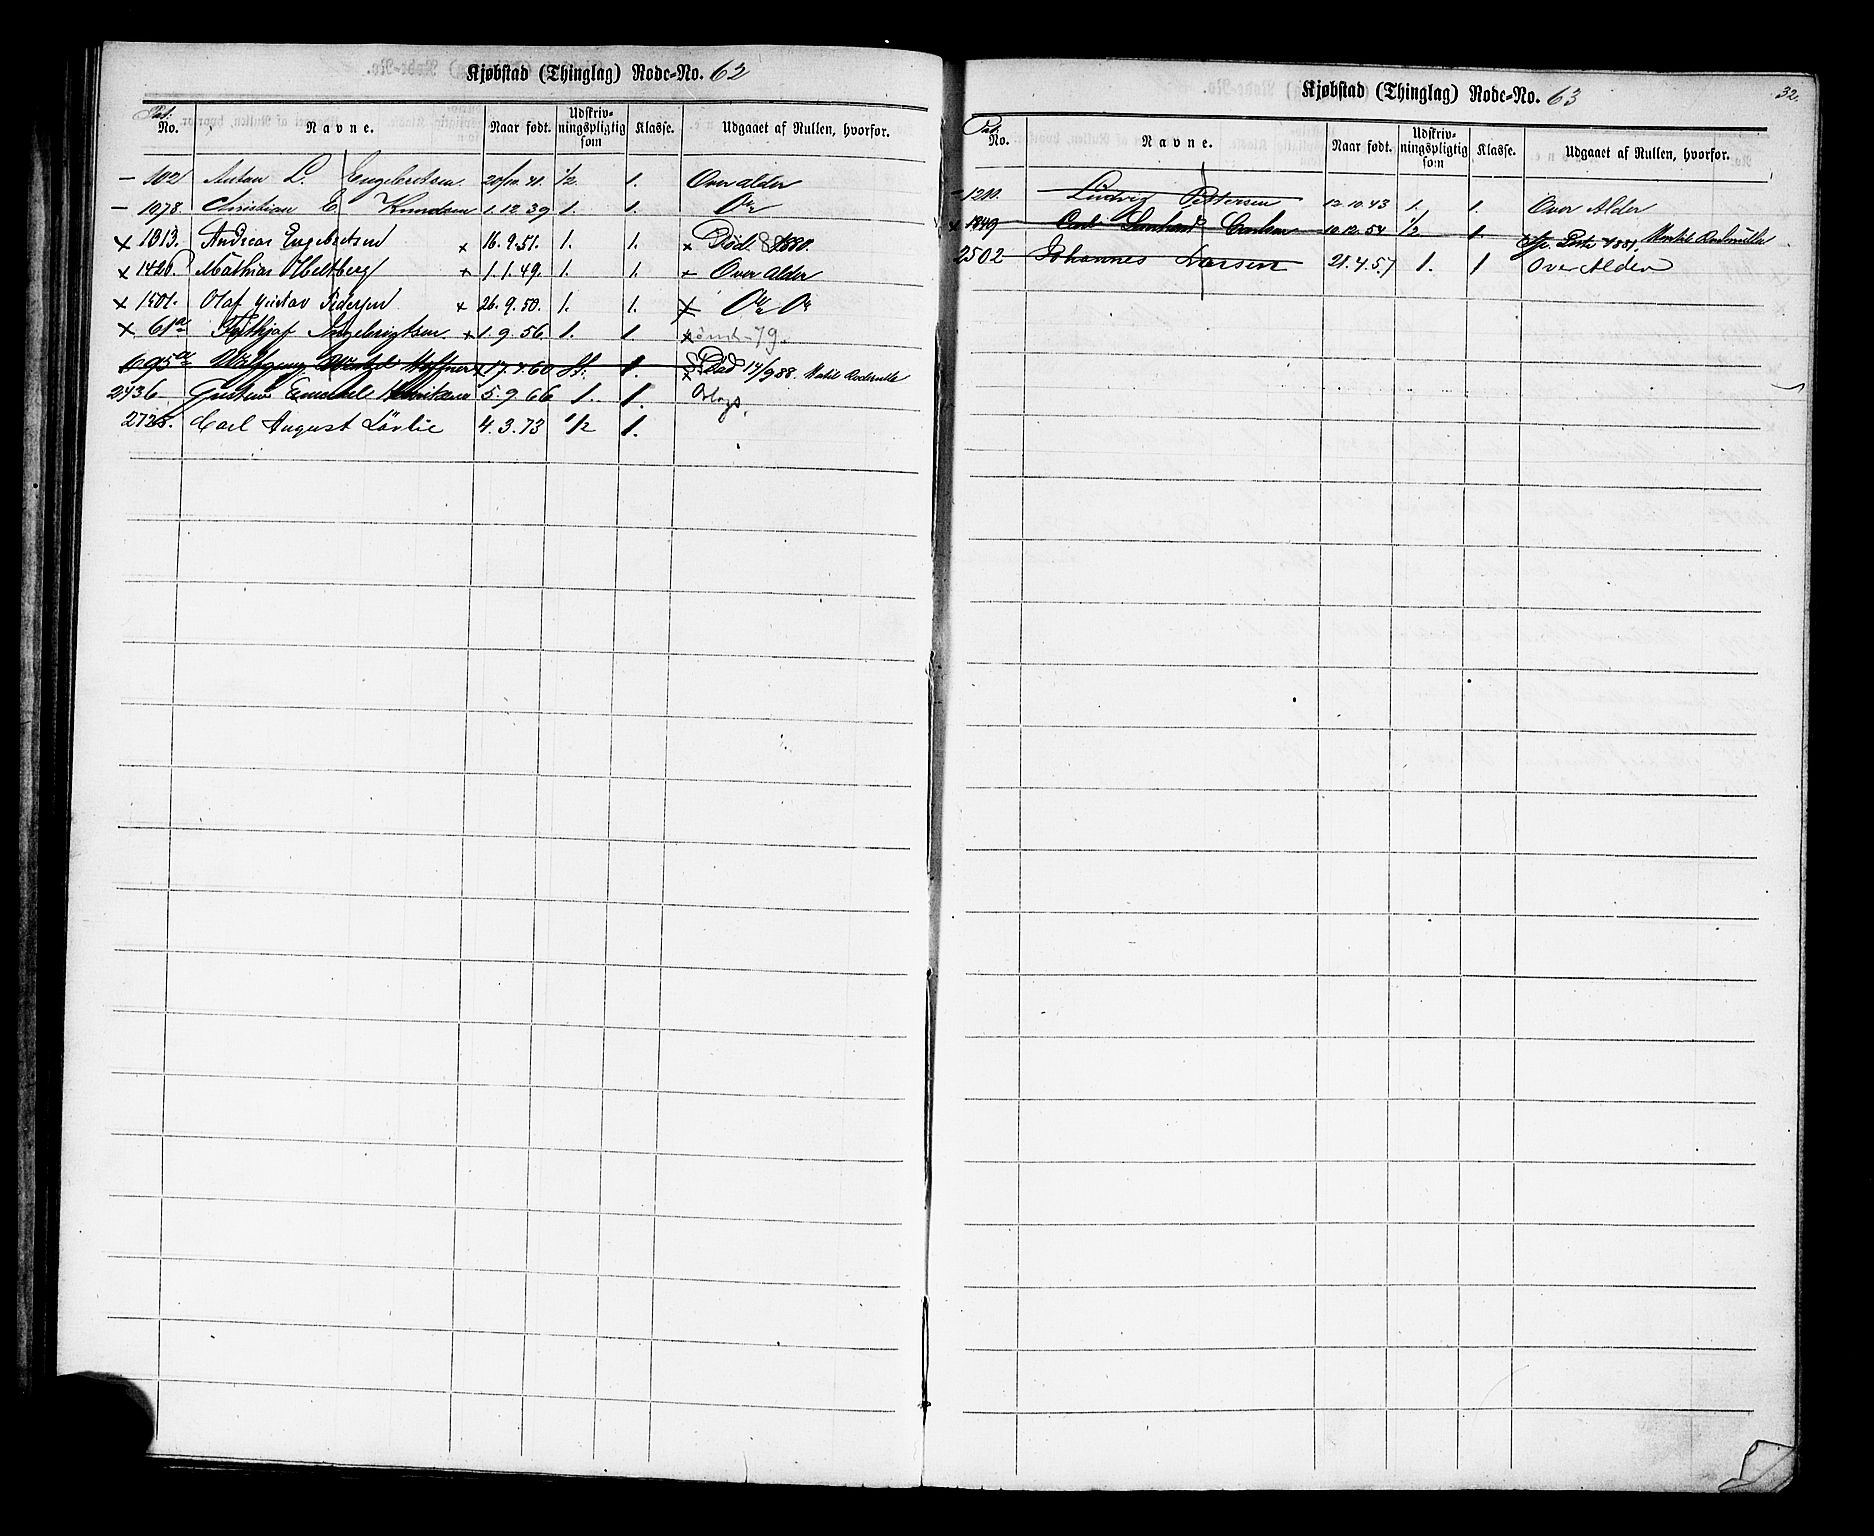 Kjøbstad (Thinglag) Rode-No. 62
Pat. No. Navne. Naar født. Udskrivningspligtig som Klasse. Udgaaet af Rullen, hvorfor.
– 102 Anton L. Engebretsen 20/10 41. 1/2 1. Over alder
– 1078 Christian E. Knudsen 1.12.39 1. 1.
x 1313. Andreas Engebretsen x 16.9.51. 1. 1. x Død. 1880.
x 1420. Mathias Holtberg x 1.1.49. 1. 1. Over alder
x 1501. Olaf Gustav Pedersen x 26.9.50. 1. 1. x
x 61a Frithjof Ingebrigtsen x 1.9.56. 1. 1.
695a 17.7.60 1. Død 14/9 88. Matil Roderulle
2436 Gustav 5.9.66 1. 1.
2728. Carl August Lövlie 4.3.73 1/2 1.
Kjøbstad (Thinglag) Rode-No. 63
32.
Pat. No. Navne. Naar født. Udskrivningspligtig som Klasse. Udgaaet af Rullen, hvorfor.
– 1210. Ludvig Pettersen 12.10.43 1. 1. Over Alder
x 1849 Carl Carlsen 10.12.54 1/2 1. 1881. Matil Roderulle
2502 Johannes Larsen 21.4.57 1. 1 Over Alder